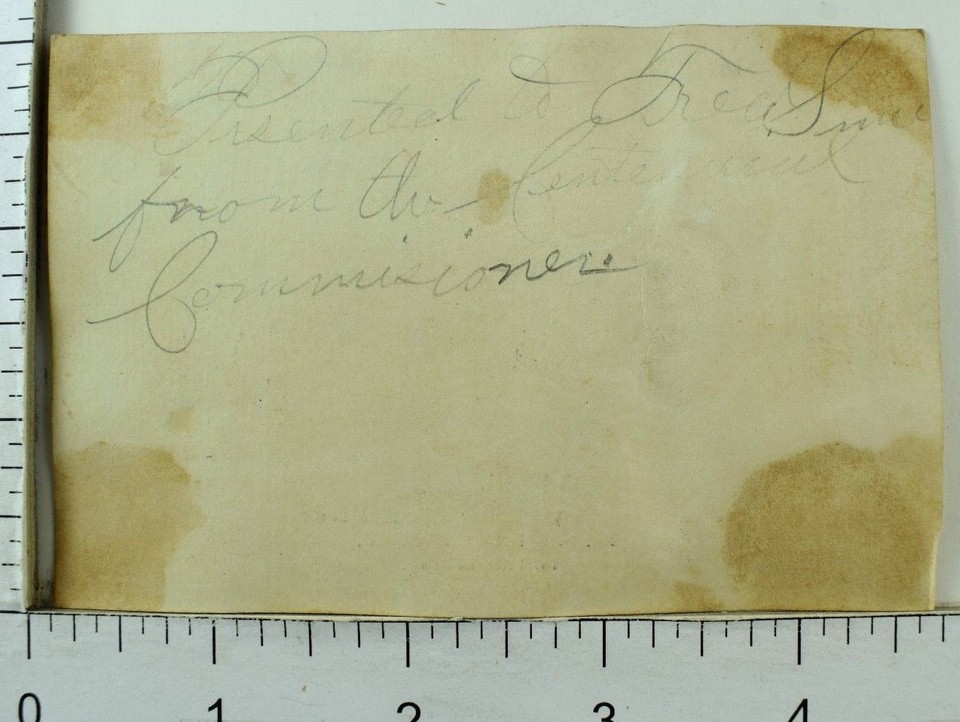 Presented to Fred Snow
from the Centennial
Commisioner.
0 1 2 3 4